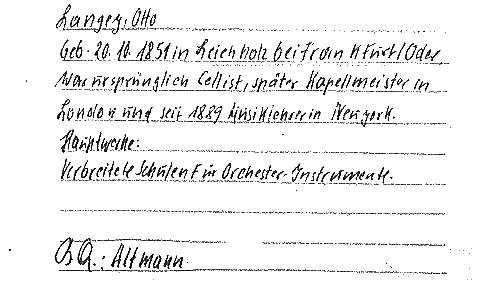 Langey, Otto
Geb. 20. 10. 1851 in Leichholz bei Frankfurt/Oder
war ursprünglich Cellist, später Kapellmeister in
London und seit 1889 Musiklehrer in Newyork.
Hauptwerke:
Verbreitete Schulen für Orchester-Instrumente.
B Q.: Altmann